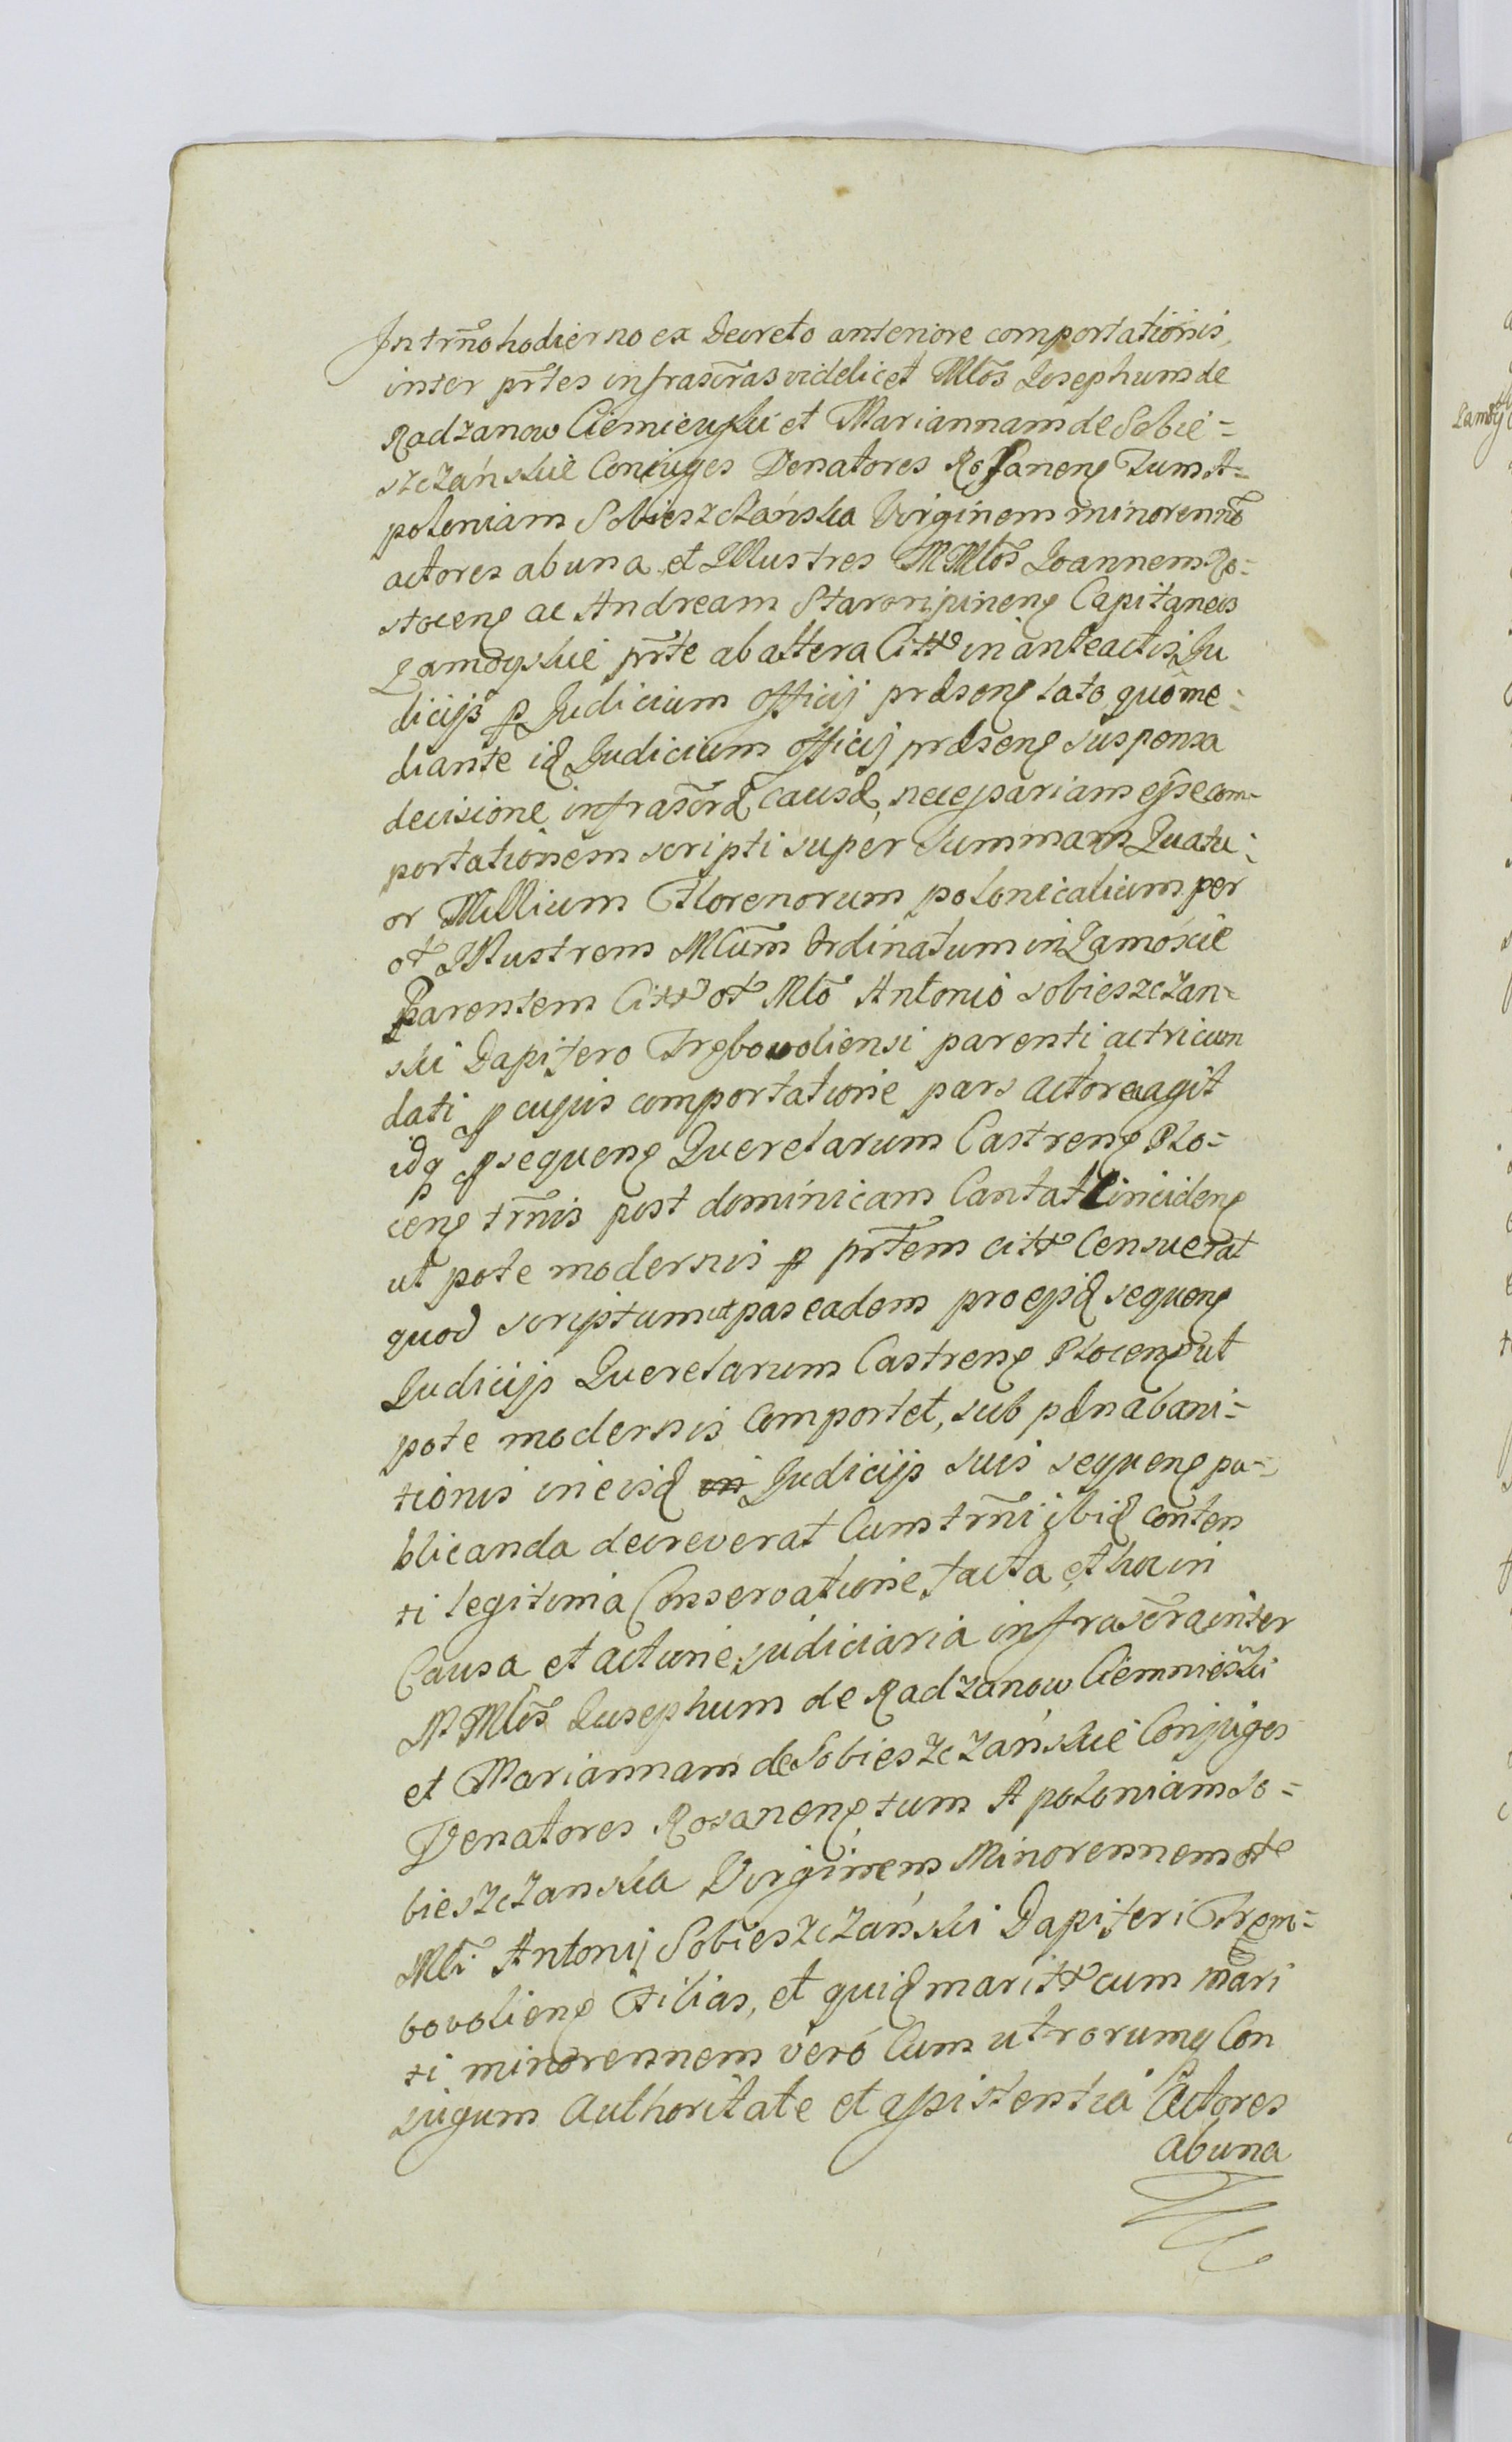 In trm̃o hodierno ex Decreto anteriore comportationis
inter prt̃es infrascr̃as videlicet Mlõs Josephum de
Radzanow Ciemiewski et Mariannam de Sobie=
szczańskie Coniuges Venatores Rossanenς Tum A=
poloniam Sobieszczańska Virginem minorennẽ
actores ab una et Illustres MMlõs Joannem Plo=
stocenς ac Andream Staroripinenς Capitaneos
Zamoyskie prt̃e ab altera Citt͠o in anteactis Ju
dicijs ꝑ Judicium officij præsenς lato, quo me=
diante id Judicium officij præsenς suspensa
decisione infrascr̃æ causæ, necessariam esse com=
portationem scripti super summam Quatu=
or Millium Florenorum polonicalium per
ol͠ Illustrem Mlũm Ordinatum in Zamoście
Parentem Citt͠o ol͠ Mlõ Antonio Sobieszczan=
ski Dapifero Trębowoliensi parenti actricum
dati ꝓ cujus comportatione pars actorea agit
idq ꝓ sequenς Querelarum Castrenς Plo=
cenς trm̃is post dominicam Cantat͠e incidenς
ut pote modernis ꝑ prt̃em citt͠o Censuerat
quod scriptum ut pars eadem pro ejsd sequenς
Judicijs Querelarum Castrenς Plocenς ut
pote modernis comportet, sub pæna bani=
tionis in eisd Judicijs suis sequenς pu=
blicanda decreverat Cum trm̃i ibid conten
ti legitima Conservatione, facta et hoc in
Causa et actione judiciaria infrascr̃a inter
MMlõs Josephum de Radzanow Ciemniewski
et Mariannam de Sobieszczańskie Conjuges
Venatores Rosanenς tum Apoloniam So=
bieszczanska Virginem Minorennem ol͠
Mlĩ Antonij Sobieszczański Dapiferi Trem=
bovolienς Filias, et quid maritt͠o cum mari
ti minorennem vero Cum utrorumq Con
jugum Authoritate et assistentia Actores
ab una